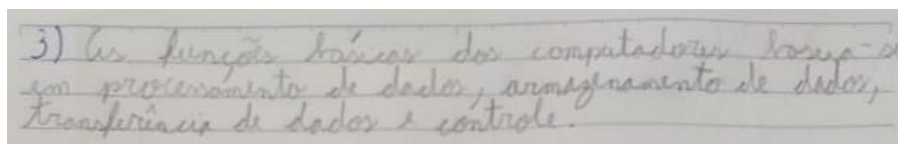 3) As funções básicas dos computadores basea-s
em processamento de dados, armazenamento de dados,
transferência de dados e controle.